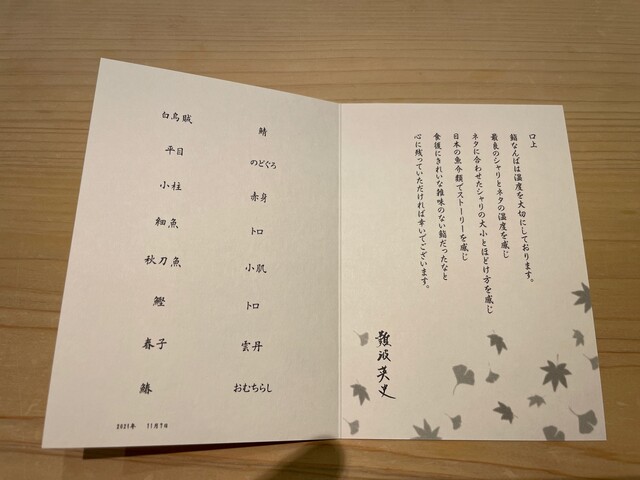 白烏賊
平目
小柱
細魚
秋刀魚
鰹
春子
鰆
2021年 11月7日
鯖
のどぐろ
赤身
トロ
小肌
トロ
雲丹
おむちらし
口上
鮨なんばは温度を大切にしております。
最良のシャリとネタの温度を感じ
ネタに合わせたシャリの大小とほどけ方を感じ
日本の魚介類でストーリーを感じ
食後にきれいな雑味のない鮨だったなと
心に残っていただければ幸いでございます。
難波英史